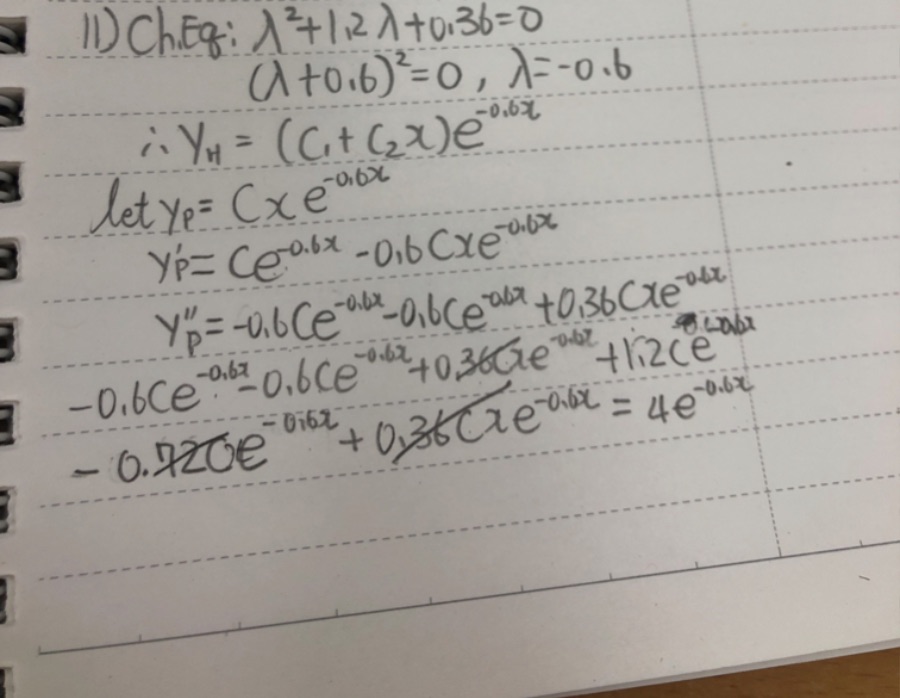 11) Ch.Eq: λ²+1.2λ+0.36=0
(λ+0.6)²=0, λ=-0.6
∴ y_H = (C₁+C₂x)e^{-0.6x}
let y_P = Cxe^{-0.6x}
y'_P = Ce^{-0.6x} -0.6Cxe^{-0.6x}
y''_P = -0.6Ce^{-0.6x} -0.6Ce^{-0.6x} +0.36Cxe^{-0.6x}
-0.6Ce^{-0.6x} -0.6Ce^{-0.6x} +0.36Cxe^{-0.6x} +1.2Ce^{-0.6x}
- 0.72Ce^{-0.6x} + 0.36Cxe^{-0.6x} = 4e^{-0.6x}